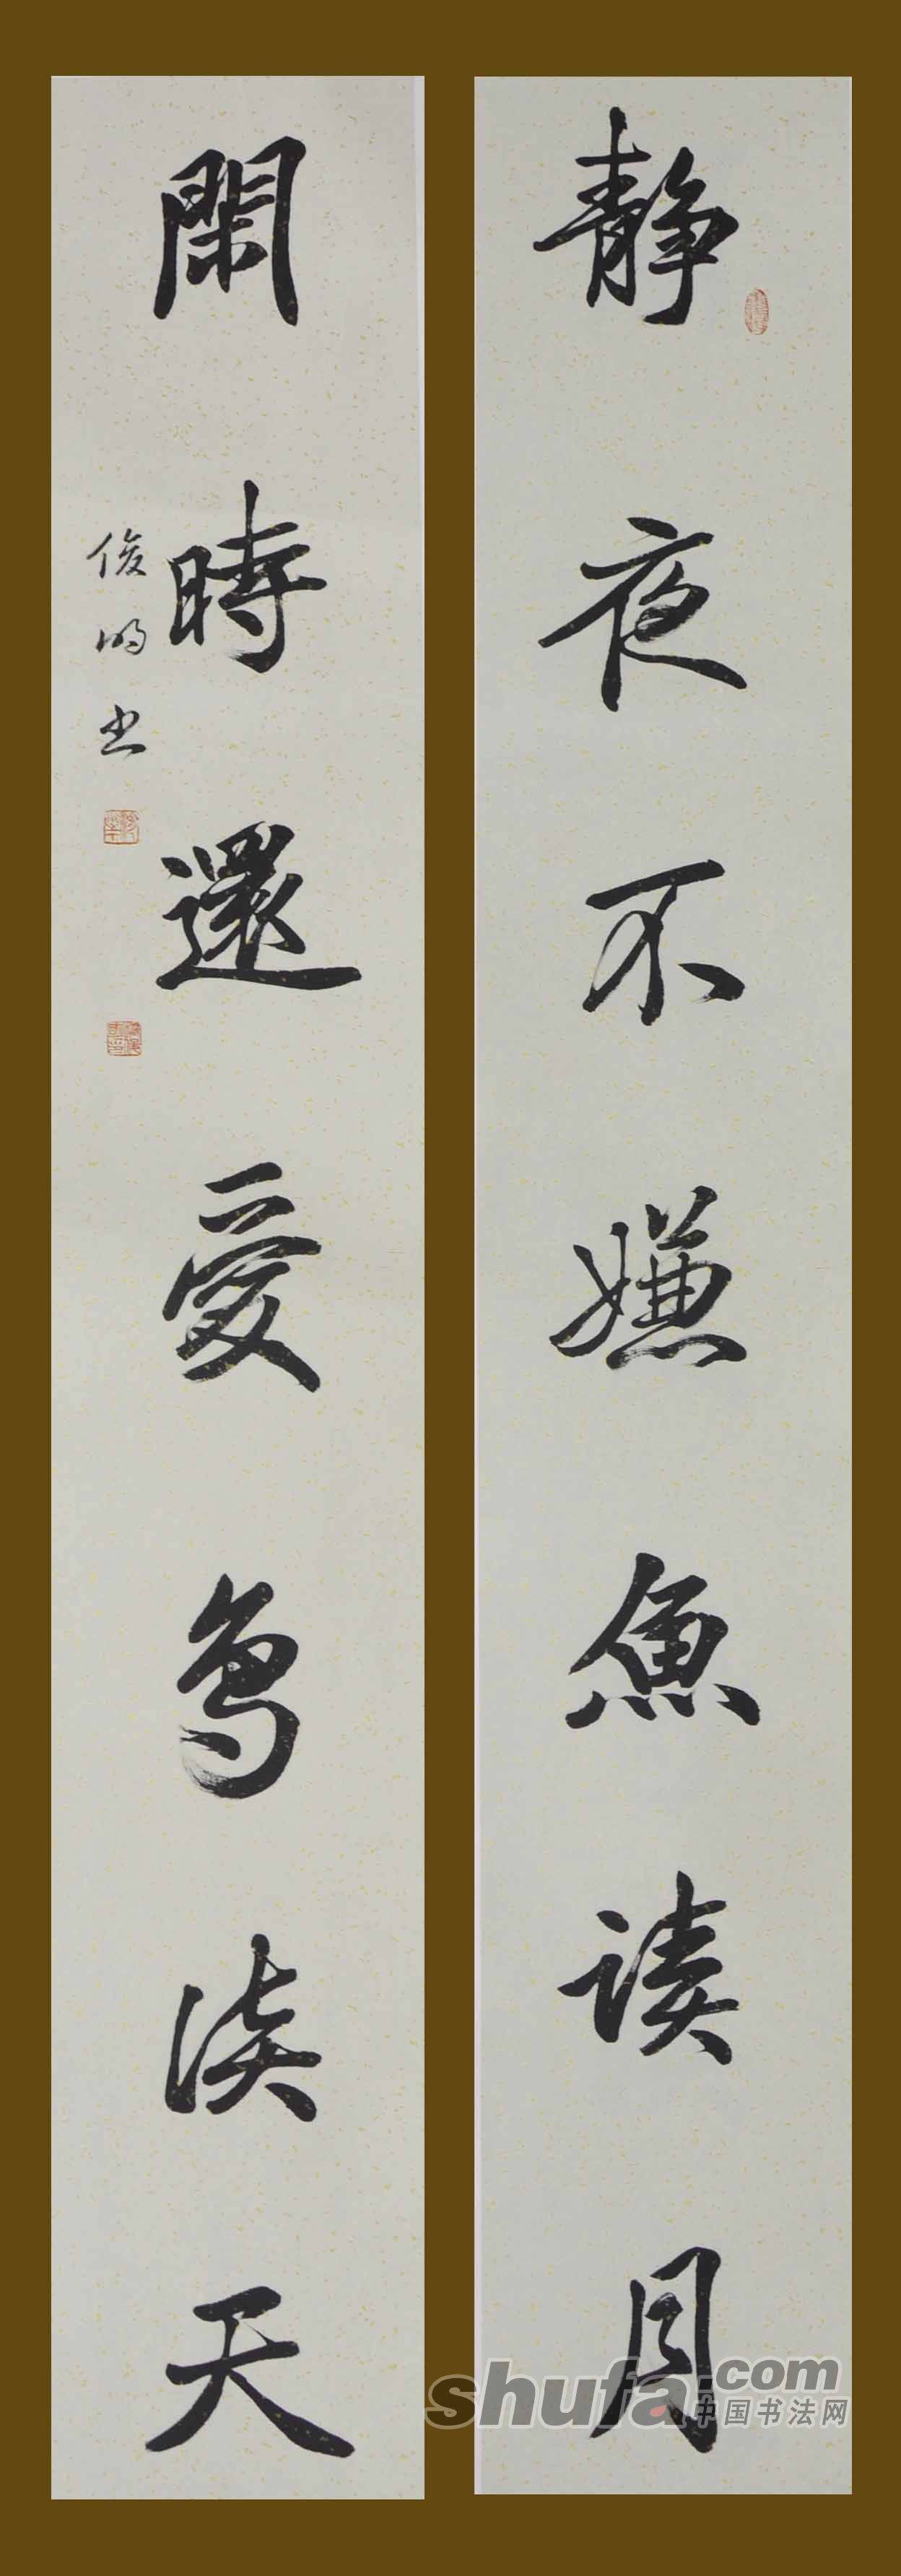 静夜不嫌魚读月
閑時還愛鳥谈天
俊明书
shufa.com
中国书法网